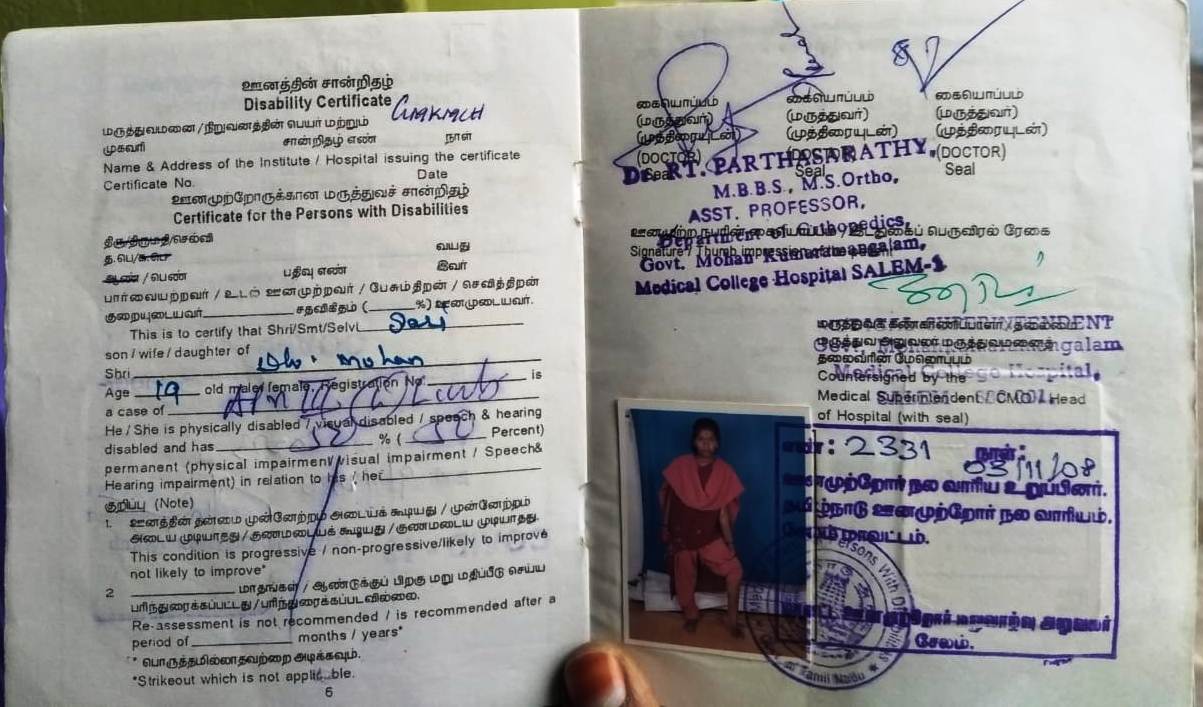 ஊனத்தின் சான்றிதழ்
Disability Certificate GMKMCH
மருத்துவமனை / நிறுவனத்தின் பெயர் மற்றும்
முகவரி சான்றிதழ் எண் நாள்
Name & Address of the Institute / Hospital issuing the certificate
Certificate No. Date
ஊனமுற்றோருக்கான மருத்துவச் சான்றிதழ்
Certificate for the Persons with Disabilities
திரு/திருமதி/செல்வி
த.பெ/க.பெ வயது
ஆண் / பெண் பதிவு எண் இவர்
பார்வையற்றவர் / உடல் ஊனமுற்றவர் / பேசும்திறன் / செவித்திறன்
குறையுடையவர் சதவிகிதம் ( %) ஊனமுடையவர்.
This is to certify that Shri/Smt/Selvi
son / wife / daughter of
Shri D/o. Mohan
Age 19 old male/ female, Registration No. is
a case of
He / She is physically disabled / visual disabled / speech & hearing
disabled and has 50 % ( 50 Percent)
permanent (physical impairment/ visual impairment / Speech&
Hearing impairment) in relation to his / her
குறிப்பு (Note)
1. ஊனத்தின் தன்மை முன்னேற்றம் அடையக் கூடியது / முன்னேற்றம்
அடைய முடியாதது / குணமடையக் கூடியது / குணமடைய முடியாதது.
This condition is progressive / non-progressive/likely to improve
not likely to improve*
2 மாதங்கள் / ஆண்டுக்குப் பிறகு மறு மதிப்பீடு செய்ய
பரிந்துரைக்கப்பட்டது / பரிந்துரைக்கப்படவில்லை.
Re-assessment is not recommended / is recommended after a
period of months / years*
* பொருத்தமில்லாதவற்றை அடிக்கவும்.
*Strikeout which is not applicable.
6
கையொப்பம் கையொப்பம் கையொப்பம்
(மருத்துவர்) (மருத்துவர்) (மருத்துவர்)
(முத்திரையுடன்) (முத்திரையுடன்) (முத்திரையுடன்)
(DOCTOR) (DOCTOR) (DOCTOR)
Seal Seal Seal
Dr. RT. PARTHASARATHY,
M.B.B.S., M.S.Ortho,
ASST. PROFESSOR,
Department of Orthopedics,
Govt. Mohan Kumaramangalam,
Medical College Hospital SALEM-1
ஊனமுற்ற நபரின் கையொப்பம் / இடதுகைப் பெருவிரல் ரேகை
Signature / Thumb impression of the
SUPERINTENDENT
Medical College Hospital,
மருத்துவக் கண்காணிப்பாளர் / தலைமை
மருத்துவ அலுவலர் மருத்துவமனைத்
தலைவரின் மேலொப்பம்
Countersigned by the
Medical Superintendent / CMO / Head
of Hospital (with seal)
எண் : 2331 நாள் : 03/11/08
ஊனமுற்றோர் நல வாரிய உறுப்பினர்.
தமிழ்நாடு ஊனமுற்றோர் நல வாரியம்.
சேலம் மாவட்டம்.
ஊனமுற்றோர் மறுவாழ்வு அலுவலர்
சேலம்.
Persons With
Tamil Nadu